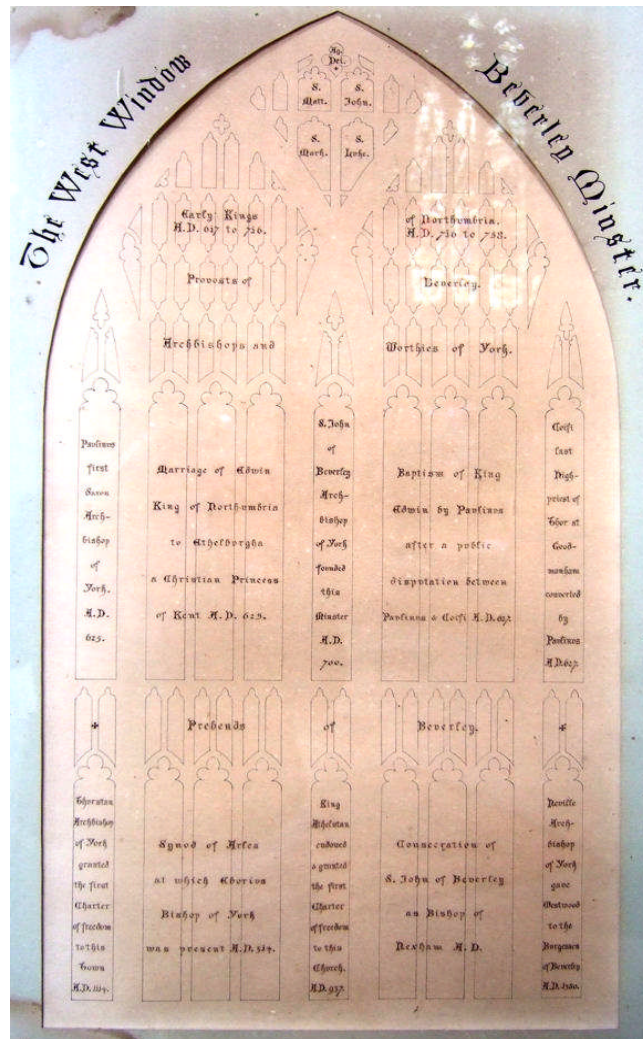 The West Window
Beverley Minster.
Ag.
Dei.
S.
Matt.
S.
John.
S.
Mark.
S.
Luke.
Early Kings
A.D. 617 to 736.
of Northumbria.
A.D. 736 to 738.
Provosts of
Beverley.
Archbishops and
Worthies of York.
Paulinus
first
Saxon
Arch-
bishop
of
York.
A.D.
625.
Marriage of Edwin
King of Northumbria
to Ethelburgha
a Christian Princess
of Kent A.D. 625.
S. John
of
Beverley
Arch-
bishop
of York
founded
this
Minster
A.D.
700.
Baptism of King
Edwin by Paulinus
after a public
disputation between
Paulinus & Coifi A.D. 627.
Coifi
last
High-
priest of
Thor at
Good-
manham
converted
by
Paulinus
A.D. 627.
Prebends
of
Beverley.
Thurstan
Archbishop
of York
granted
the first
Charter
of freedom
to this
Town
A.D. 1114.
Synod of Arles
at which Eborius
Bishop of York
was present A.D. 314.
King
Athelstan
endowed
& granted
the first
Charter
of freedom
to this
Church.
A.D. 937.
Consecration of
S. John of Beverley
as Bishop of
Hexham A.D.
Neville
Arch-
bishop
of York
gave
Westwood
to the
Burgesses
of Beverley
A.D. 1380.